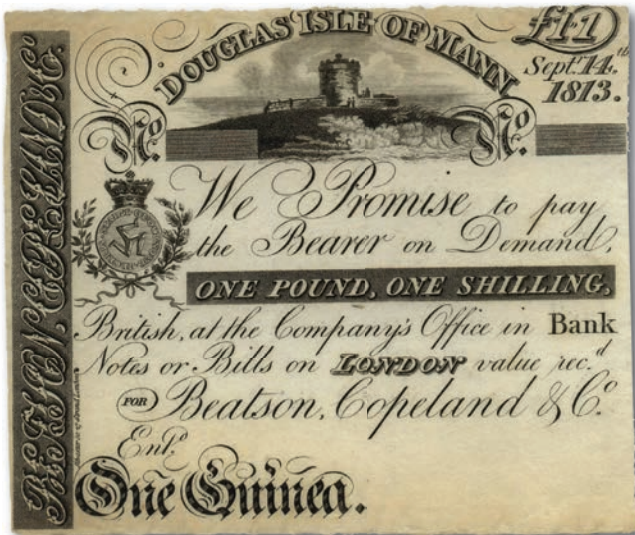 DOUGLAS ISLE OF MANN
£1"1
Sept.^r 14.^th
1813.
N.^o N.^o
We Promise to pay
the Bearer on Demand,
ONE POUND, ONE SHILLING,
British, at the Company's Office in Bank
Notes or Bills on LONDON value rec.^d
FOR Beatson, Copeland & C.^o
Ent.^d
One Guinea.
BEATSON, COPELAND & C.^o